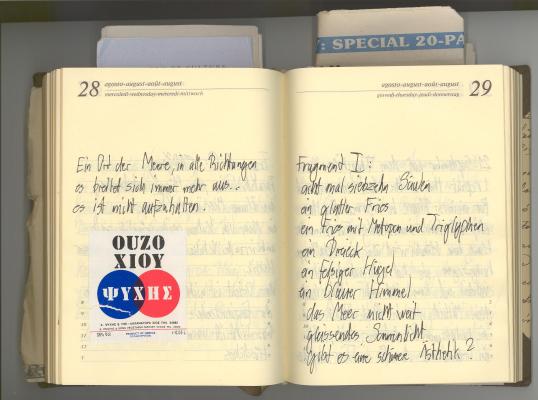 : SPECIAL 20-PA
28
agosto-august-août-august
mercoledì-wednesday-mercredi-mittwoch
Ein Ort der Meere, in alle Richtungen
es breitet sich immer mehr aus.
es ist nicht aufzuhalten.
OUZO
ΧΙΟΥ
ΨΥΧΗΣ
agosto-august-août-august
giovedì-thursday-jeudi-donnerstag
29
Fragment I:
acht mal siebzehn Säulen
ein glatter Fries
ein Fries mit Metopen und Triglyphen
ein Dreieck
ein felsiger Hügel
ein blauer Himmel
das Meer nicht weit
gleissendes Sonnenlicht
gibt es eine schönere Ästhetik?